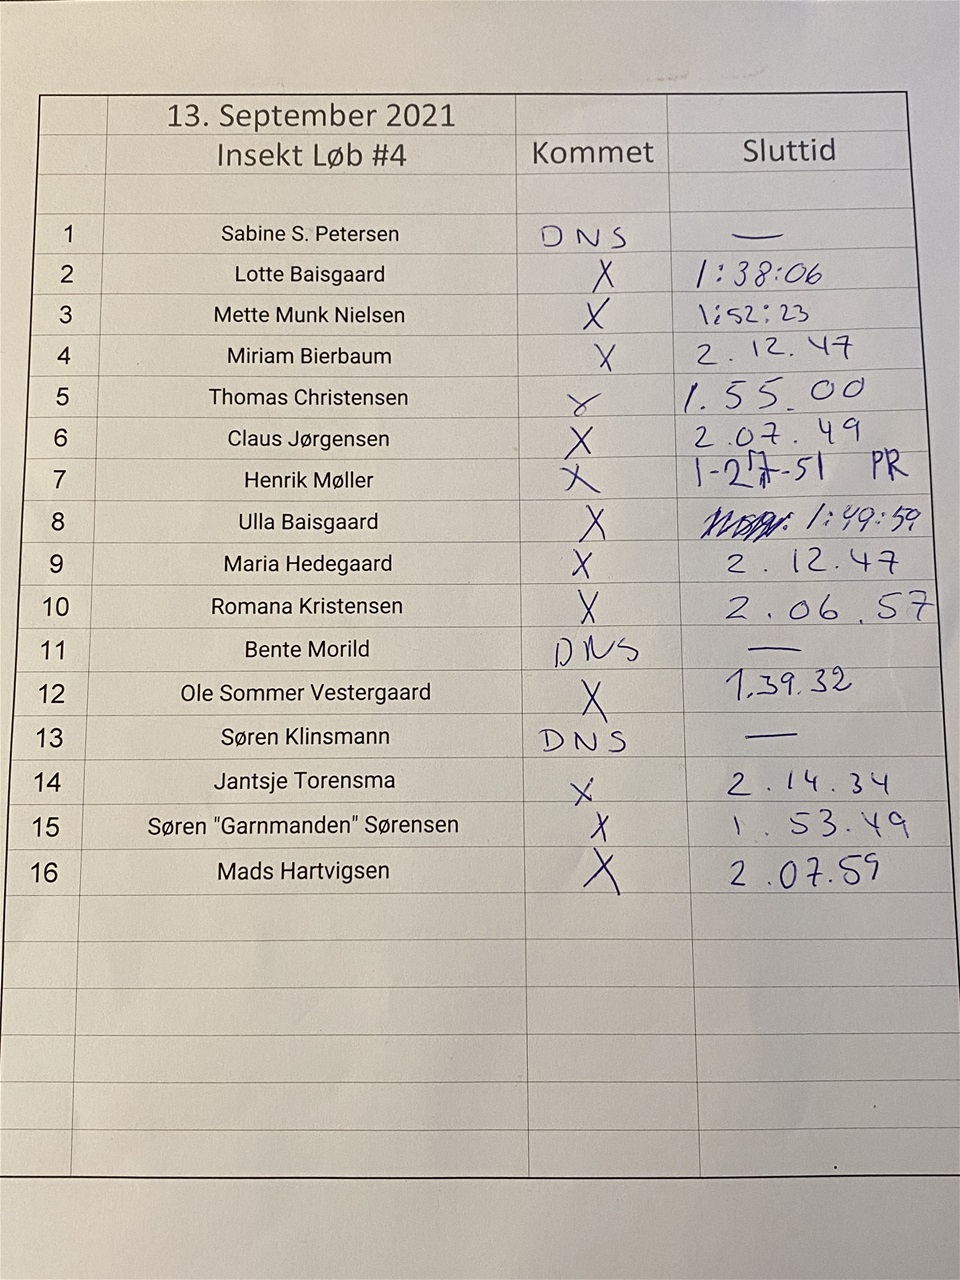 13. September 2021
Insekt Løb #4 Kommet Sluttid
1 Sabine S. Petersen DNS —
2 Lotte Baisgaard X 1:38:06
3 Mette Munk Nielsen X 1:52:23
4 Miriam Bierbaum X 2.12.47
5 Thomas Christensen X 1.55.00
6 Claus Jørgensen X 2.07.49
7 Henrik Møller X 1-27-51 PR
8 Ulla Baisgaard X 1:49:59
9 Maria Hedegaard X 2.12.47
10 Romana Kristensen X 2.06.57
11 Bente Morild DNS —
12 Ole Sommer Vestergaard X 1.39.32
13 Søren Klinsmann DNS —
14 Jantsje Torensma X 2.14.34
15 Søren "Garnmanden" Sørensen X 1.53.49
16 Mads Hartvigsen X 2.07.59